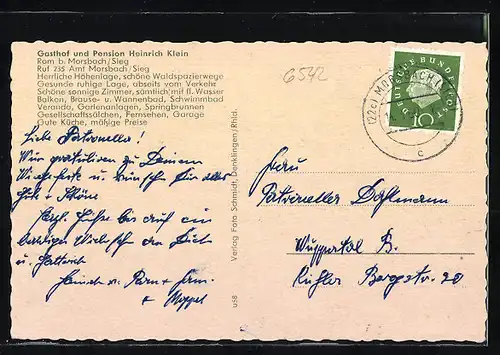 Gasthof und Pension Heinrich Klein
Rom b. Morsbach/Sieg
Ruf 735 Amt Morsbach/Sieg
Herrliche Höhenlage, schöne Waldspazierwege
Gesunde ruhige Lage, abseits vom Verkehr
Schöne sonnige Zimmer, sämtlich mit fl. Wasser
Balken, Brause- u. Wannenbad, Schwimmbad
Veranda, Gartenanlagen, Springbrunnen
Gesellschaftssälchen, Fernsehen, Garage
Gute Küche, mäßige Preise
Liebe Patronella!
Wir gratulieren zu Deinem
Wiegenfeste u. wünschen Dir alles
Gute + Schöne
Herzl. Grüße bis auf ein
baldiges Wiedersehn an Dich
u.
Heinrich u.
+ Moppel
Verlag Foto Schmidt Denklingen/Rhld.
U58
6572
(22c) MORSBACH
c
DEUTSCHE BUNDESPOST
10
Frau
Patronella Dahlmann
Wuppertal B.
Kühler Bergstr. 20